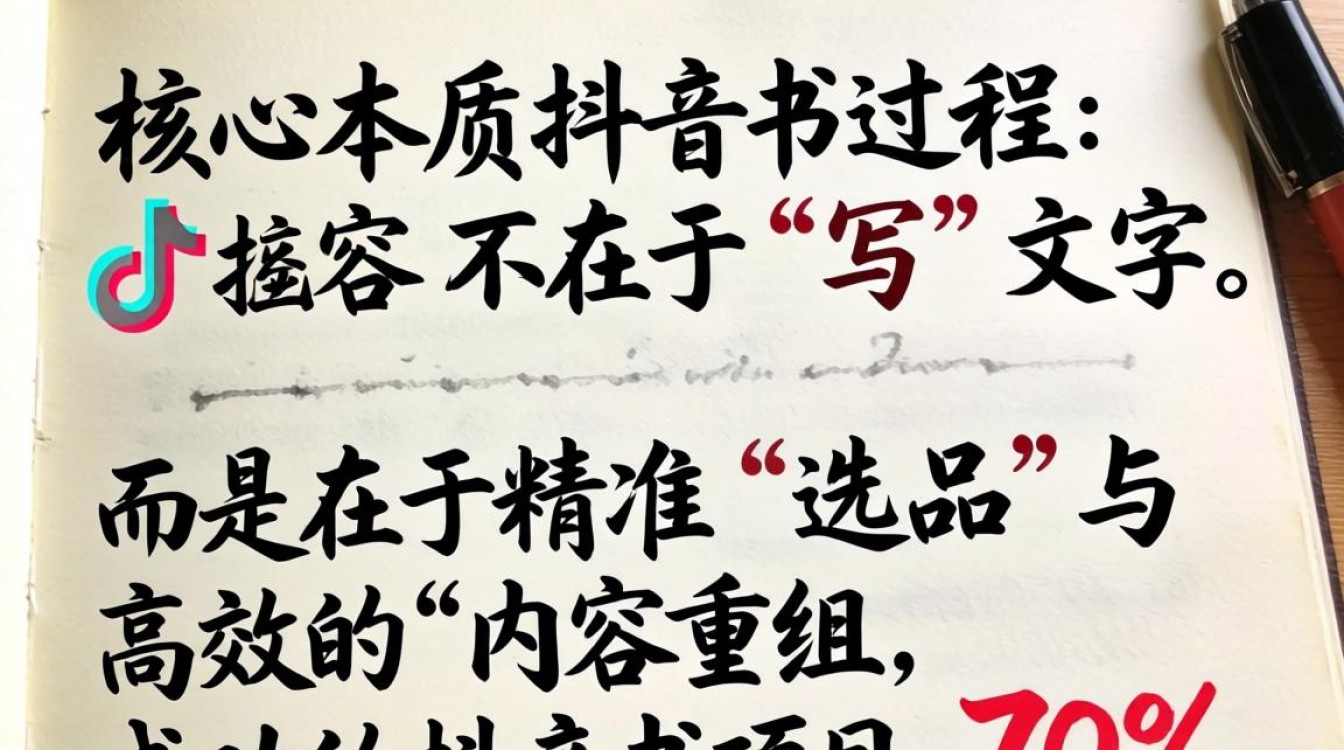 核心本质抖音书过程：
容 不在于“写”文字。
而是在于精准“选品”与
高效的“内容重组，
抖音书项目 70%